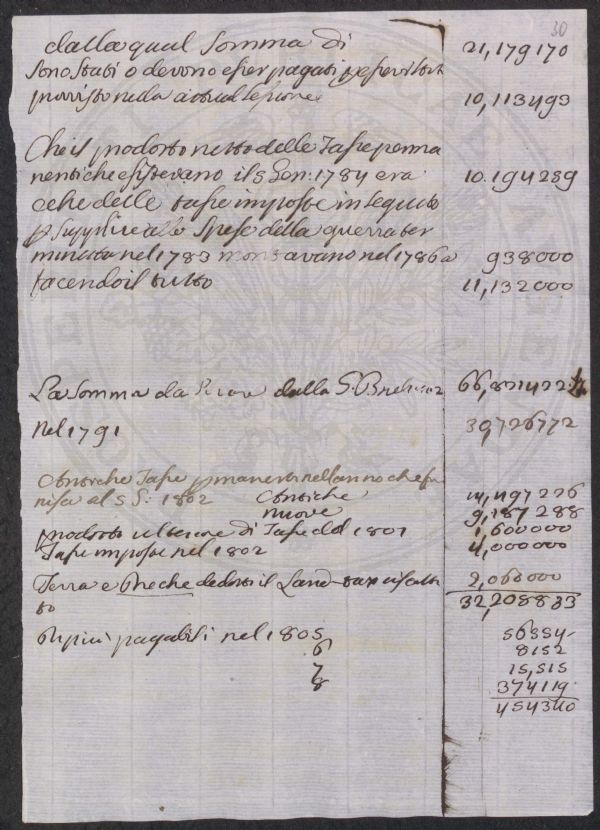 30
dalla qual somma di 21,179170
sono stati o devono esser pagati per servizi
provvisto nella attual sessione 10,113493
Che il prodotto netto delle Tasse perma
nenti che esistevano il 5 Gen: 1784 era 10.194259
e che delle tasse imposte in seguito
p supplire alle Spese della guerra ter
minata nel 1783 montavano nel 1786 a 938000
facendo il tutto 11,132000
La somma da dalla G. 66,821422
nel 1791 39,726772
Antiche Tasse pmanenti nell anno che fi
nisce al 5 G: 1802 Antiche 14,497226
nuove 9,187288
prodotto ulteriore di Tasse del 1801 1,600000
Tasse imposte nel 1802 4,000000
Terra e dedotto il Land tax riscatta
to 2,060000
32,208833
pagabili nel 1805 56554
6 8152
7 15,515
8 374119
454340